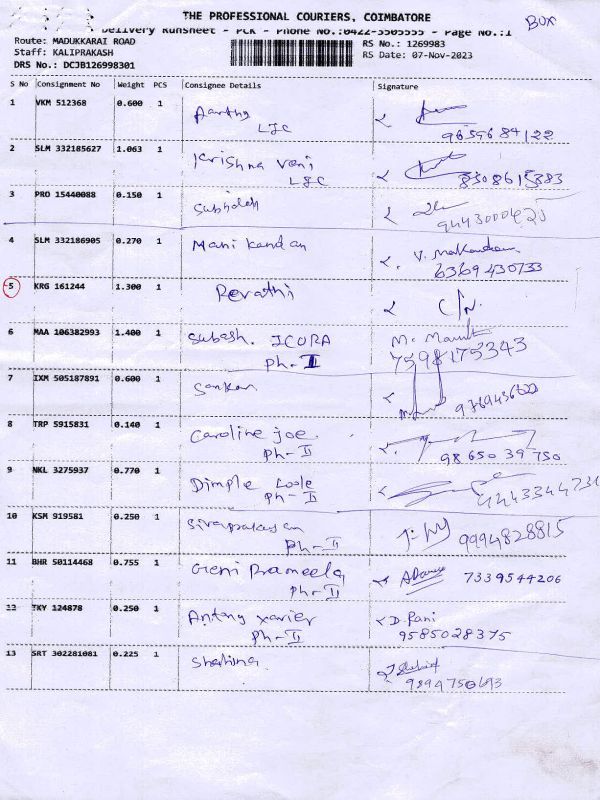 THE PROFESSIONAL COURIERS, COIMBATORE
BOX
Delivery Runsheet - PCR - Phone No.:0422-3505555 - Page No.:1
Route: MADUKKARAI ROAD
Staff: KALIPRAKASH
DRS No.: DCJB126998301
RS No.: 1269983
RS Date: 07-Nov-2023
S No Consignment No Weight PCS Consignee Details Signature
1 VKM 512368 0.600 1 Parthy
L&C 9659684122
2 SLM 332185627 1.063 1 Krishna Veni
L&C 8508615383
3 PRO 15440088 0.150 1
4 SLM 332186905 0.270 1 Mani kandan
6369430733
5 KRG 161244 1.300 1 Revathi C/N.
6 MAA 106382993 1.400 1 Subash. ICORA
Ph-II 7598175343
7 IXM 505187891 0.600 1 Sankar
8 TRP 5915831 0.140 1 Caroline joe.
Ph-II 9865039750
9 NKL 3275937 0.770 1 Dimple
Ph-II
10 KSM 919581 0.250 1 Sivaprakasan
Ph-II 9994828815
11 BHR 50114468 0.755 1 Geni Prameela 7339544206
Ph-II
12 TKY 124878 0.250 1 Antony Xavier D. Rani
Ph-II 9585028375
13 SRT 302281081 0.225 1 Shahina
9894750693